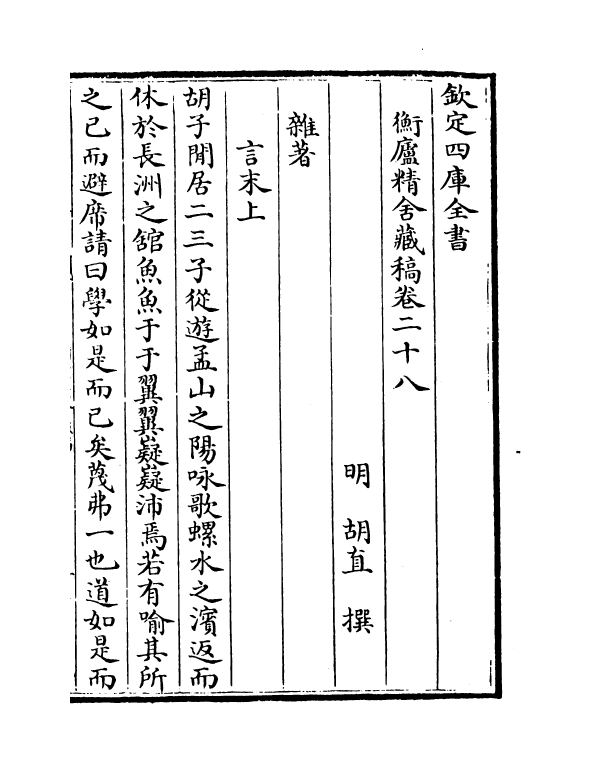 欽定四庫全書
衡廬精舍藏稿卷二十八
明 胡直 撰
雜著
言末上
胡子閒居二三子從遊孟山之陽咏歌螺水之濱返而
休於長洲之舘魚魚于于翼翼嶷嶷沛焉若有喻其所
之已而避席請曰學如是而已矣蔑弗一也道如是而